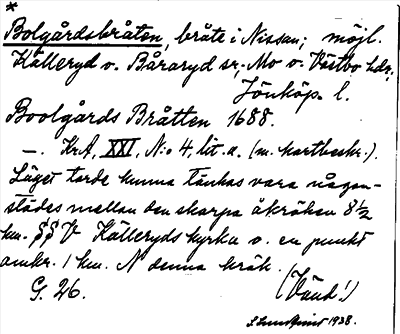 *
Bolgårdsbråten, bråte i Nissan; möjl.
Källeryd o. Båraryd sr; Mo o. Västbo hdr;
Jönköp. l.
Boolgårds Bråtten 1688.
—. KrA, XXI, N:o 4, lit. a. (m. kartbeskr.).
Läget torde kunna tänkas vara någon-
städes mellan den skarpa åkröken 8½
km. SSV Källeryds kyrka o. en punkt
omkr. 1 km. N denna krök.
G. 26. (Vänd!)
1938.